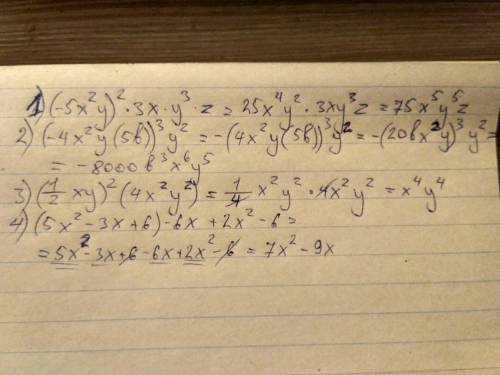 1) (-5x²y)² · 3x · y³ · z = 25x⁴y² · 3xy³z = 75x⁵y⁵z
2) (-4x²y(5b))³y² = -(4x²y(5b))³y² = -(20bx²y)³y² =
= -8000b³x⁶y⁵
3) (1/2 xy)² (4x²y²) = 1/4 x²y² · 4x²y² = x⁴y⁴
4) (5x² - 3x + 6) - 6x + 2x² - 6 =
= 5x² - 3x + 6 - 6x + 2x² - 6 = 7x² - 9x